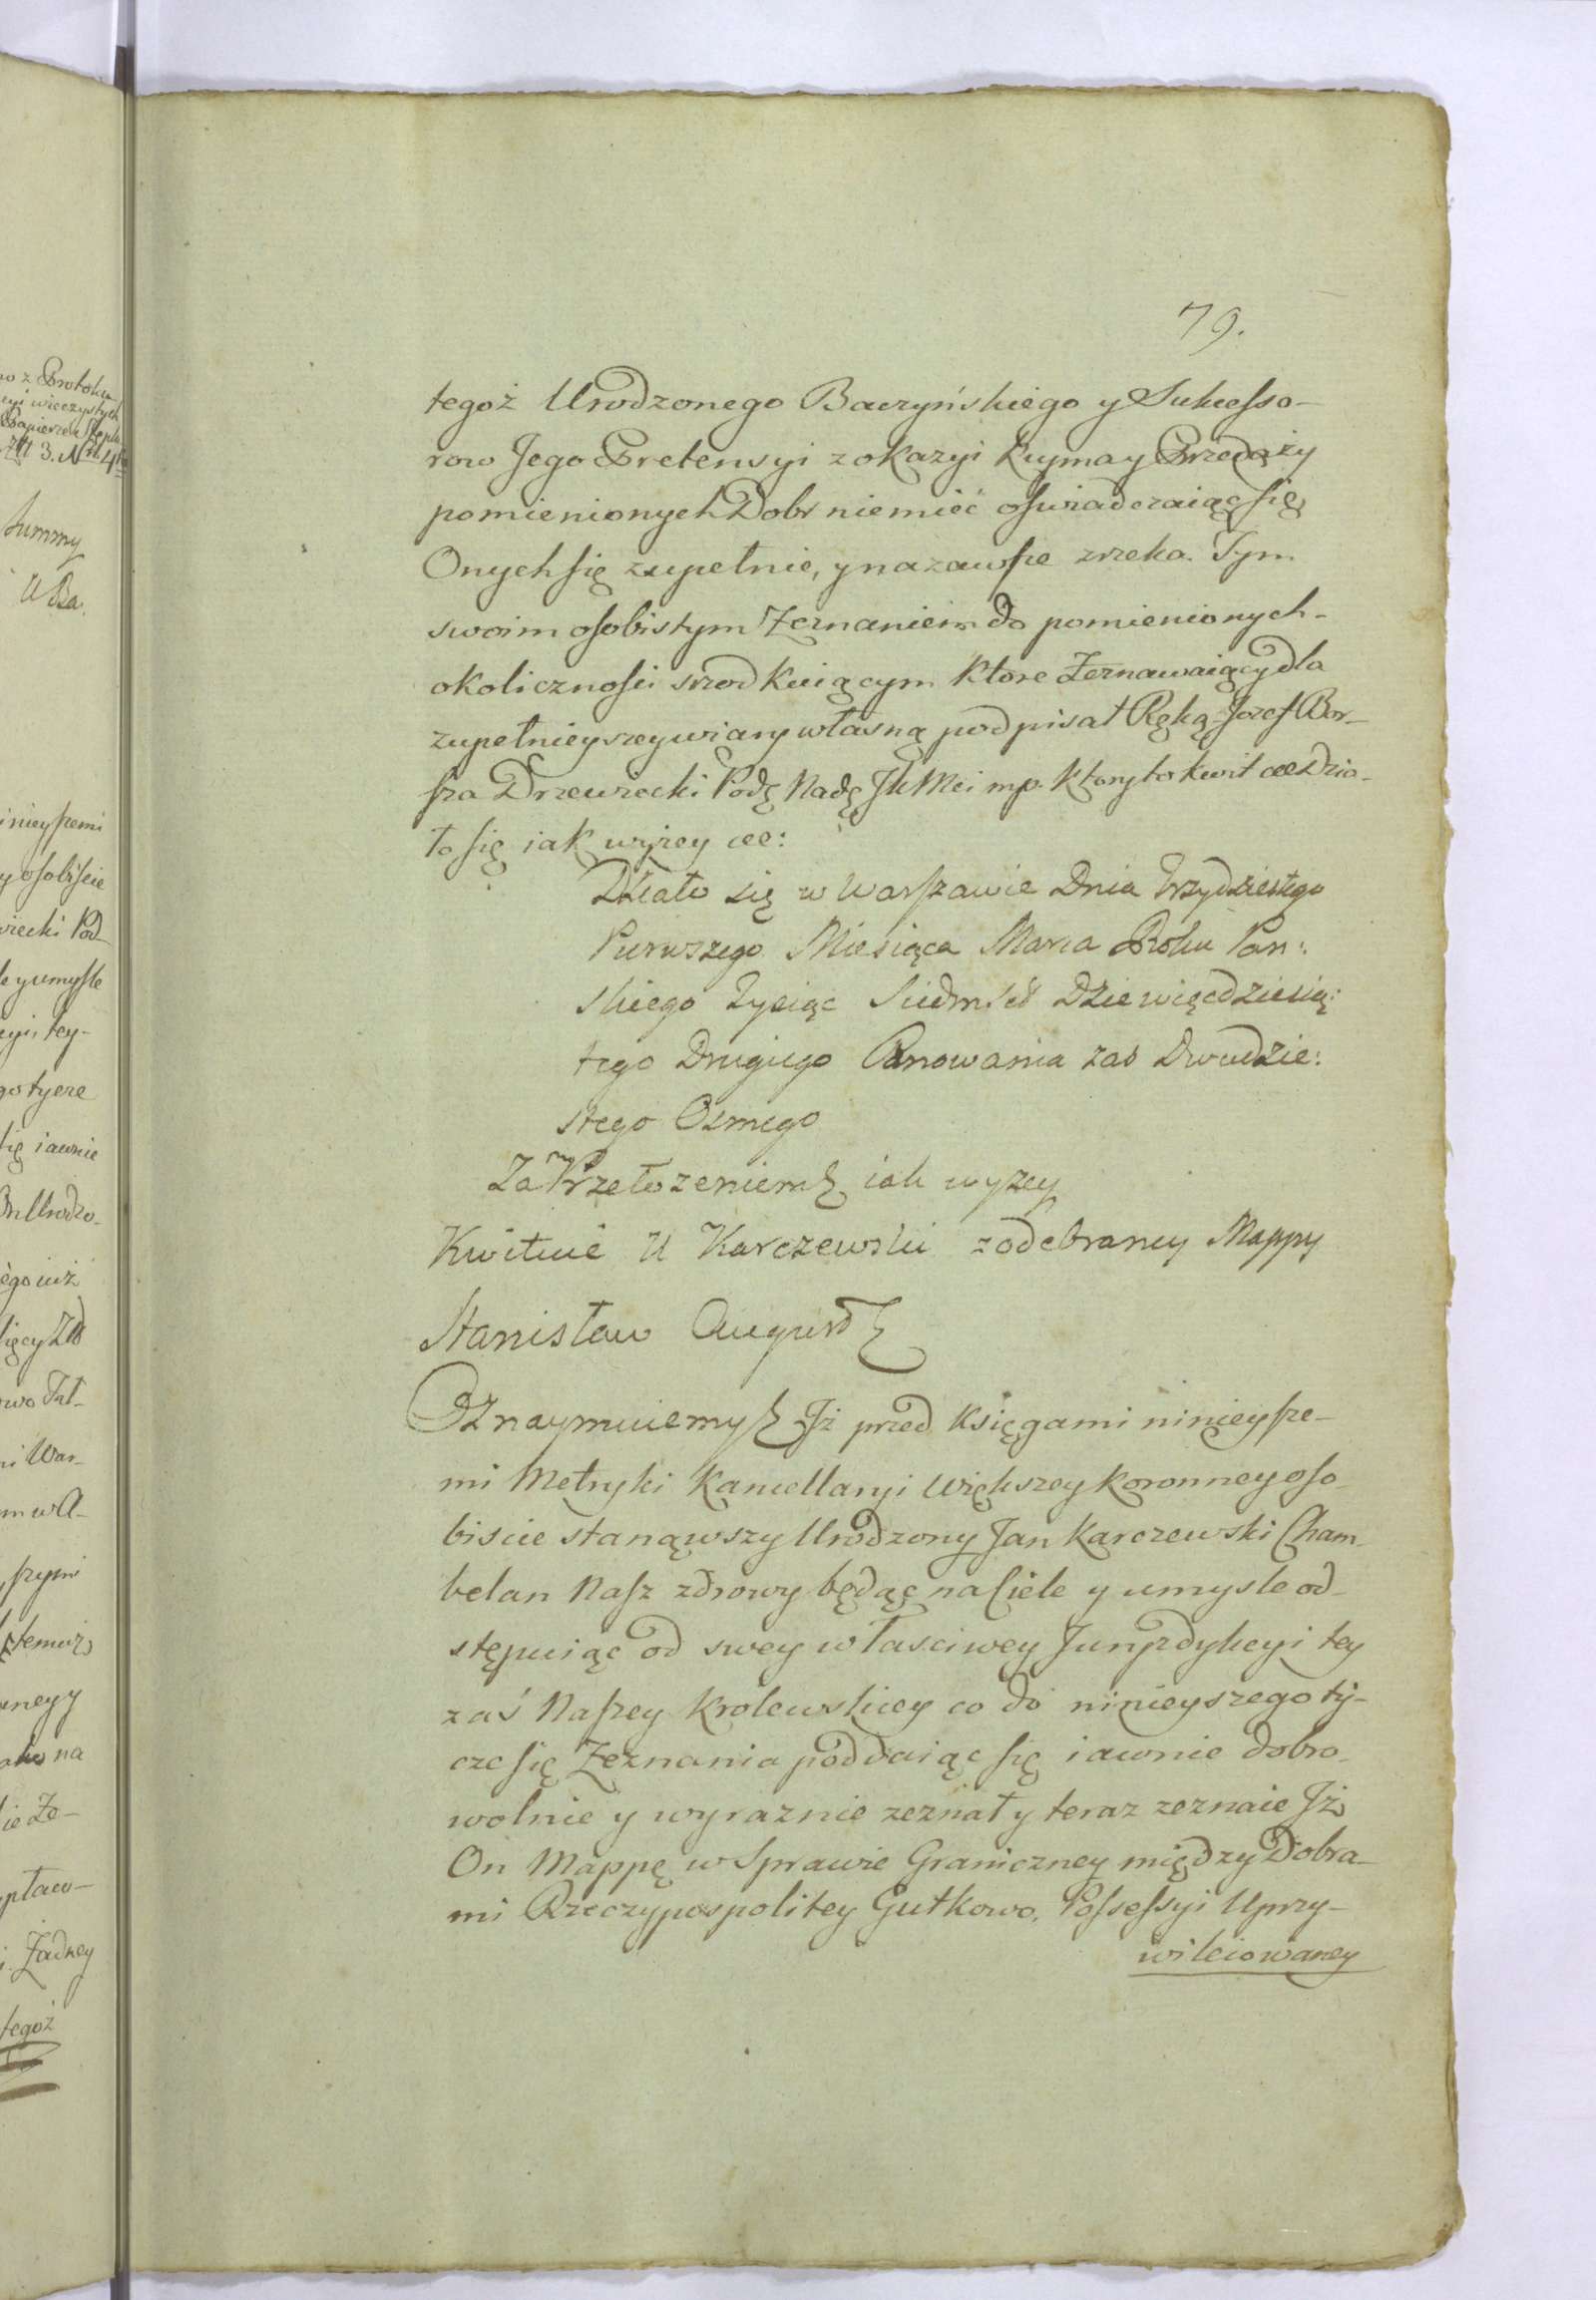 79.
tegoż Urodzonego Baczyńskiego y Sukcesso-
row Jego Pretensyi z okazyi Kupna y Przedaży
pomienionych Dobr niemieć oświadczaiąc się
Onych się zupełnie, y na zawsze zrzeka. Tym
swoim osobistym Zeznaniem do pomienionych-
okoliczności srodkuiącym ktore Zeznawaiący dla
zupełnieyszey wiary własną podpisał Ręką Jozef Bor-
sza Drzewiecki Podę Nadę JKMci mp. Ktory to kwit &c Dzia-
ło się iak wyżey &c:
Działo się w Warszawie Dnia Trzydziestego
Pierwszego Miesiąca Marca Roku Pan:
skiego Tysiąc Siedmset Dziewięcdziesią:
tego Drugiego Panowania zas Dwudzie:
stego Osmego
Za Przełozeniem iak wyzey
Kwituie U Karczewski z odebraney Mappy
Stanisław August
Oznaymuiemy Iż przed Księgami ninieysze-
mi Metryki Kancellaryi Większey Koronney oso-
biscie stanąwszy Urodzony Jan Karczewski Cham-
belan Nasz zdrowy będąc na Ciele y umysle od-
stępuiąc od swey własciwey Juryzdykcyi tey
zaś Naszey Krolewskiey co do ninieyszego ty-
cze się Zeznania poddaiąc się iawnie dobro-
wolnie y wyraznie zeznał y teraz zeznaie Iż
On Mappę w Sprawie Graniczney między Dobra-
mi Rzeczypospolitey Gutkowo, Possessyi Uprzy-
wileiowaney
o z Protoku
cyi wieczystych
Papierem Stępl:
zł 3. Nro 4to
Summy
U Dza.
i nieyszemi
y osobiscie
wiecki Pod-
le y umysle
cyi, tey-
go tycze
się iawnie
Urodzo-
ego iuż
ni War-
m w A-
szymi
temuż
ney y
na
ie Ze-
Żadney
tegoż